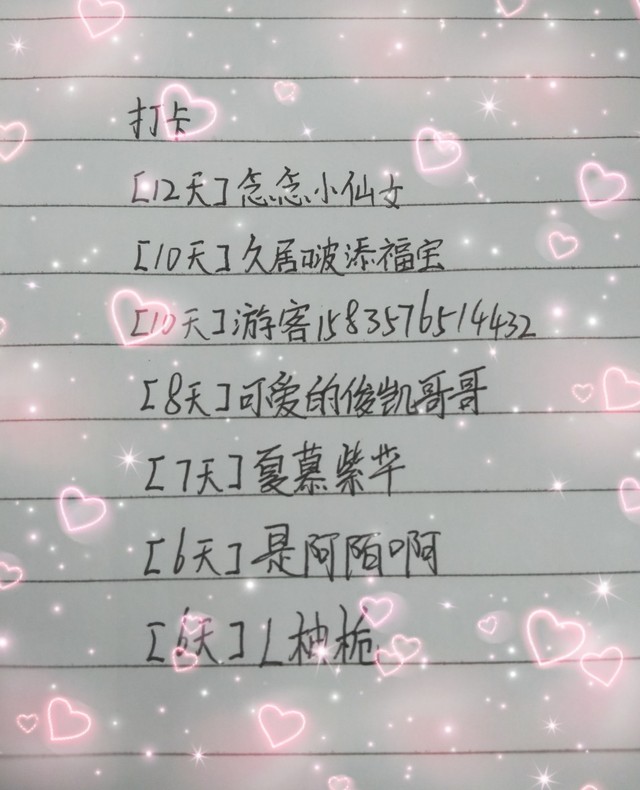 打卡
[12天]念念小仙女
[10天]久居啵添福宝
[10天]游客1583576514432
[8天]可爱的俊凯哥哥
[7天]夏慕紫华
[6天]是阿陌啊
[6天]L柚栀